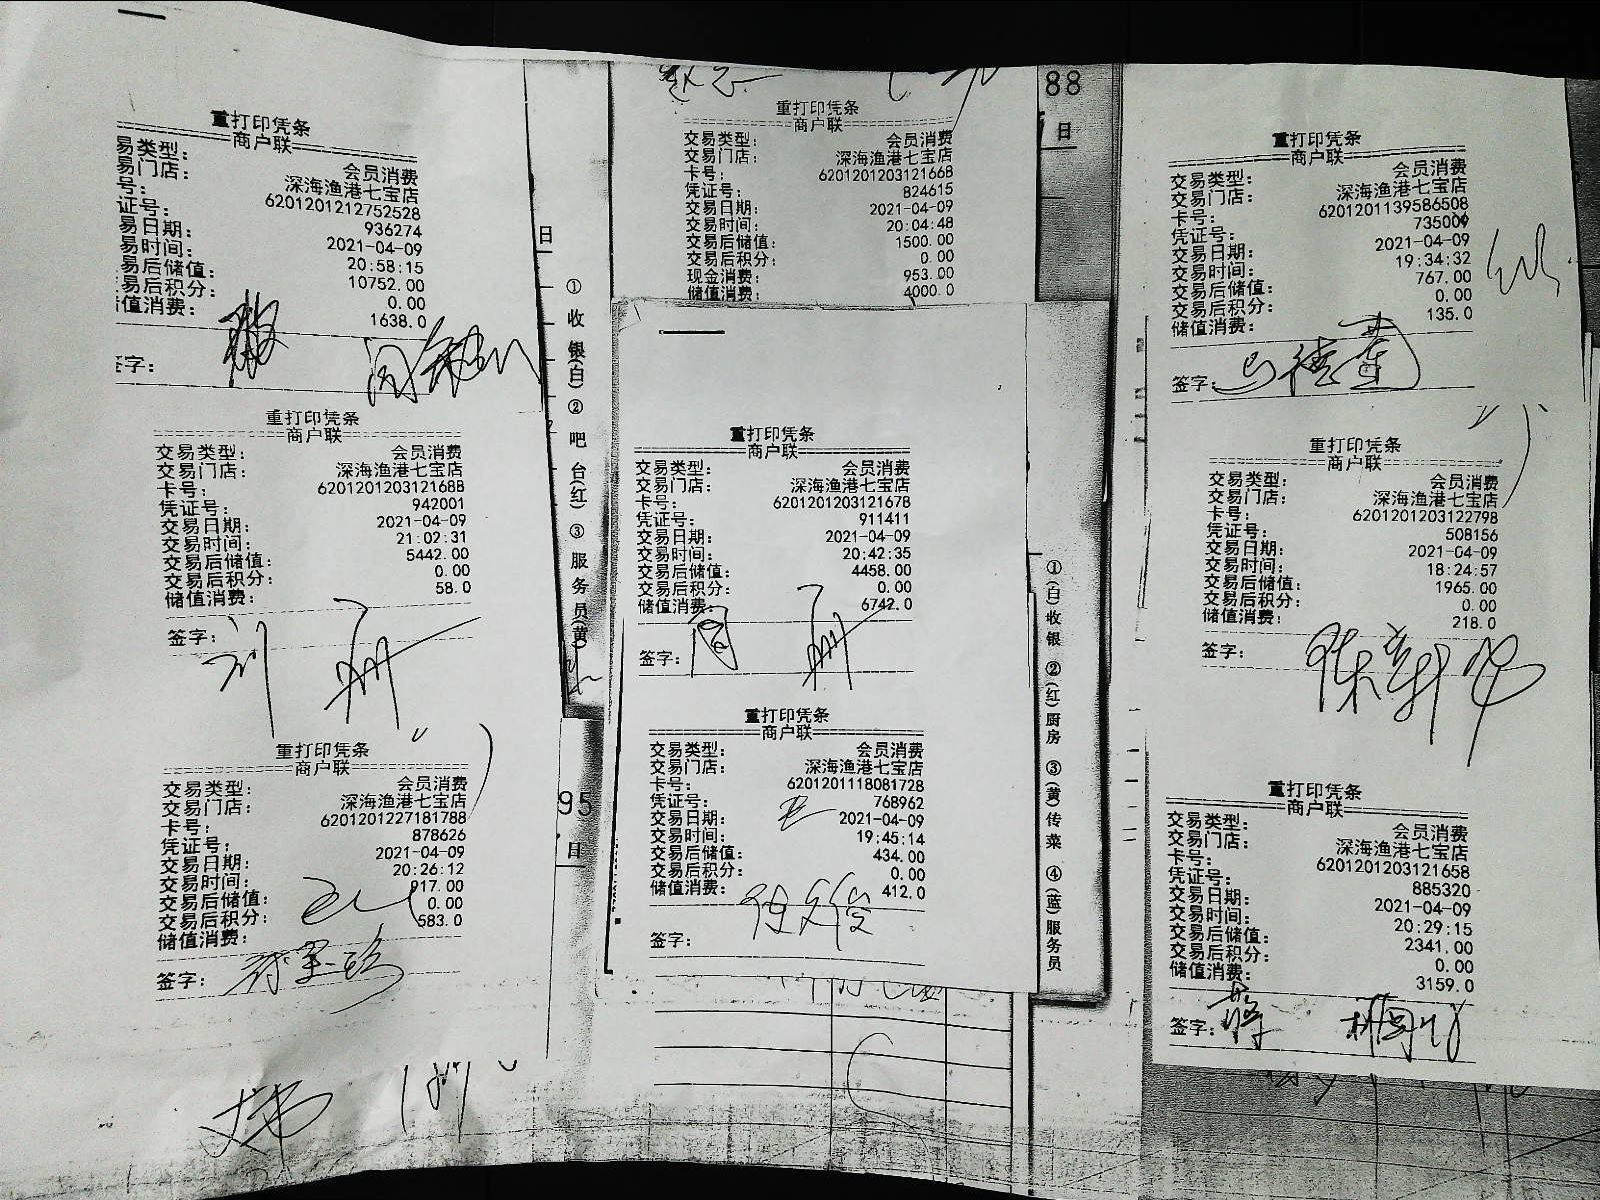 重打印凭条
商户联
易类型： 会员消费
易门店： 深海渔港七宝店
号： 6201201212752528
证号： 936274
易日期： 2021-04-09
易时间： 20:58:15
易后储值： 10752.00
易后积分： 0.00
值消费： 1638.0
签字：
重打印凭条
商户联
交易类型： 会员消费
交易门店： 深海渔港七宝店
卡号： 6201201203121688
凭证号： 942001
交易日期： 2021-04-09
交易时间： 21:02:31
交易后储值： 5442.00
交易后积分： 0.00
储值消费： 58.0
签字：
重打印凭条
商户联
交易类型： 会员消费
交易门店： 深海渔港七宝店
卡号： 6201201227181788
凭证号： 878626
交易日期： 2021-04-09
交易时间： 20:26:12
交易后储值： 917.00
交易后积分： 0.00
储值消费： 583.0
签字：
日
①收银(白)②吧台(红)③服务员(黄)
95
日
重打印凭条
商户联
交易类型： 会员消费
交易门店： 深海渔港七宝店
卡号： 6201201203121668
凭证号： 824615
交易日期： 2021-04-09
交易时间： 20:04:48
交易后储值： 1500.00
交易后积分： 0.00
现金消费： 953.00
储值消费： 4000.0
重打印凭条
商户联
交易类型： 会员消费
交易门店： 深海渔港七宝店
卡号： 6201201203121678
凭证号： 911411
交易日期： 2021-04-09
交易时间： 20:42:35
交易后储值： 4458.00
交易后积分： 0.00
储值消费： 6742.0
签字：
重打印凭条
商户联
交易类型： 会员消费
交易门店： 深海渔港七宝店
卡号： 6201201118081728
凭证号： 768962
交易日期： 2021-04-09
交易时间： 19:45:14
交易后储值： 434.00
交易后积分： 0.00
储值消费： 412.0
签字：
88
日
①(白)收银②(红)厨房③(黄)传菜④(蓝)服务员
重打印凭条
商户联
交易类型： 会员消费
交易门店： 深海渔港七宝店
卡号： 6201201139586508
凭证号： 735009
交易日期： 2021-04-09
交易时间： 19:34:32
交易后储值： 767.00
交易后积分： 0.00
储值消费： 135.0
签字：
重打印凭条
商户联
交易类型： 会员消费
交易门店： 深海渔港七宝店
卡号： 6201201203122798
凭证号： 508156
交易日期： 2021-04-09
交易时间： 18:24:57
交易后储值： 1965.00
交易后积分： 0.00
储值消费： 218.0
签字：
重打印凭条
商户联
交易类型： 会员消费
交易门店： 深海渔港七宝店
卡号： 6201201203121658
凭证号： 885320
交易日期： 2021-04-09
交易时间： 20:29:15
交易后储值： 2341.00
交易后积分： 0.00
储值消费： 3159.0
签字：